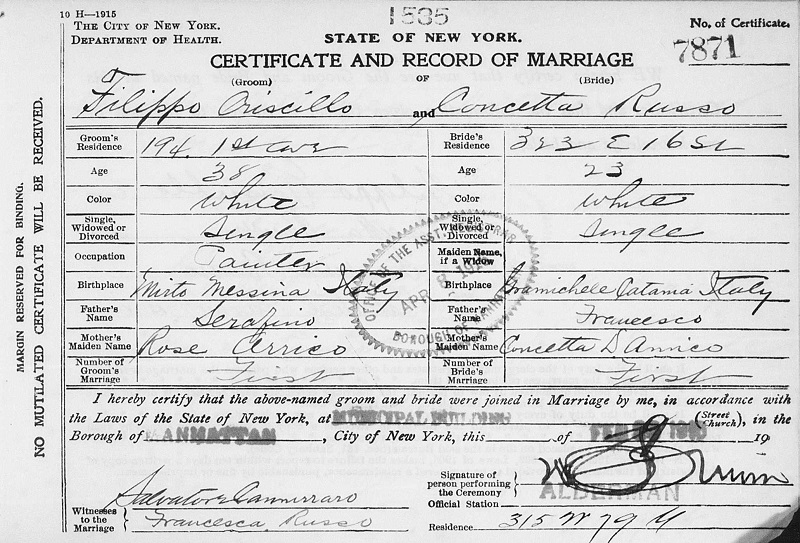 10 H—1915
1535
THE CITY OF NEW YORK.
DEPARTMENT OF HEALTH.
STATE OF NEW YORK.
No. of Certificate.
7871
CERTIFICATE AND RECORD OF MARRIAGE
OF
(Groom) (Bride)
Filippo Oriscillo and Concetta Russo
Groom's Residence 194. 1st Ave Bride's Residence 323 E 16 St
Age 38 Age 23
Color White Color White
Single, Widowed or Divorced Single Single, Widowed or Divorced Single
Occupation Painter Maiden Name, if a Widow
Birthplace Mirto Messina Italy Birthplace Gramichele Catania Italy
Father's Name Serafino Father's Name Francesco
Mother's Maiden Name Rose Cerrico Mother's Maiden Name Concetta D Amico
Number of Groom's Marriage First Number of Bride's Marriage First
OFFICE OF THE ASST. REGISTRAR
APR 8
BOROUGH OF MANHATTAN
I hereby certify that the above-named groom and bride were joined in Marriage by me, in accordance with
the Laws of the State of New York, at MUNICIPAL BUILDING (Street Church), in the
Borough of MANHATTAN, City of New York, this of FEB 19
Signature of person performing the Ceremony
ALDERMAN
Official Station
Residence 315 W 79 St
Witnesses to the Marriage
Salvatore
Francesca Russo
MARGIN RESERVED FOR BINDING.
NO MUTILATED CERTIFICATE WILL BE RECEIVED.